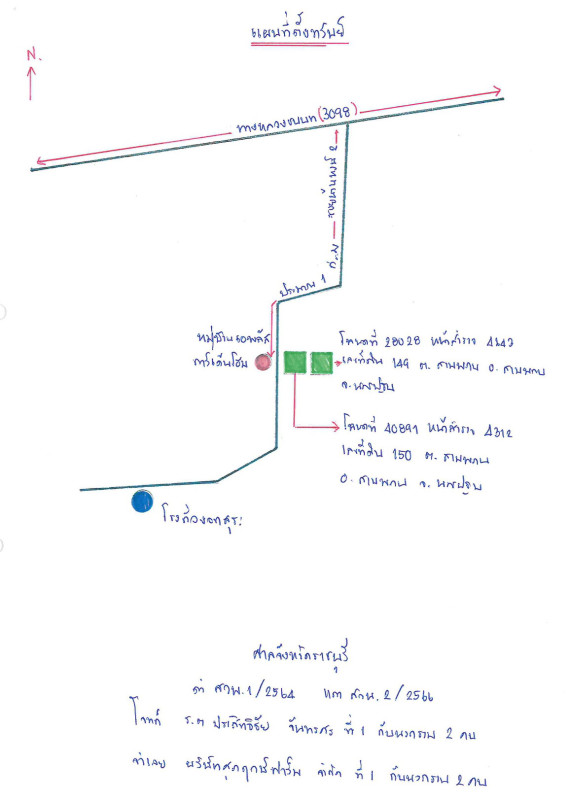 แผนที่ตั้งทรัพย์
N.
ทางหลวงชนบท (3098)
ประมาณ 1 ก.ม.
หมู่บ้าน
การ์เด้นโฮม
โฉนดที่ 28028 หน้าสำรวจ 4143
เลขที่ดิน 149 ต. สามพราน อ. สามพราน
จ. นครปฐม
โฉนดที่ 40891 หน้าสำรวจ 4312
เลขที่ดิน 150 ต. สามพราน
อ. สามพราน จ. นครปฐม
ศาลจังหวัดราชบุรี
ดำ สวพ. 1/2564 แดง สวพ. 2/2566
โจทก์ ร.ต ประสิทธิชัย จันทรศร ที่ 1 กับพวกรวม 2 คน
จำเลย บริษัทสุภฤกษ์ฟาร์ม จำกัด ที่ 1 กับพวกรวม 2 คน